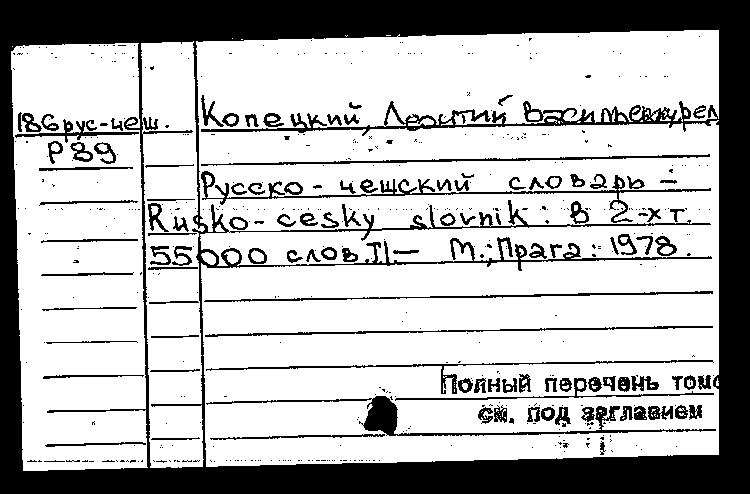 18Gрус-чеш. Копецкий, Леонтий Васильевич, ред
Р 89
Русско-чешский словарь –
Rusko-cesky slovnik: в 2-х т.
55000 слов. Т1 — М.; Прага: 1978.
Полный перечень томо
см. под заглавием